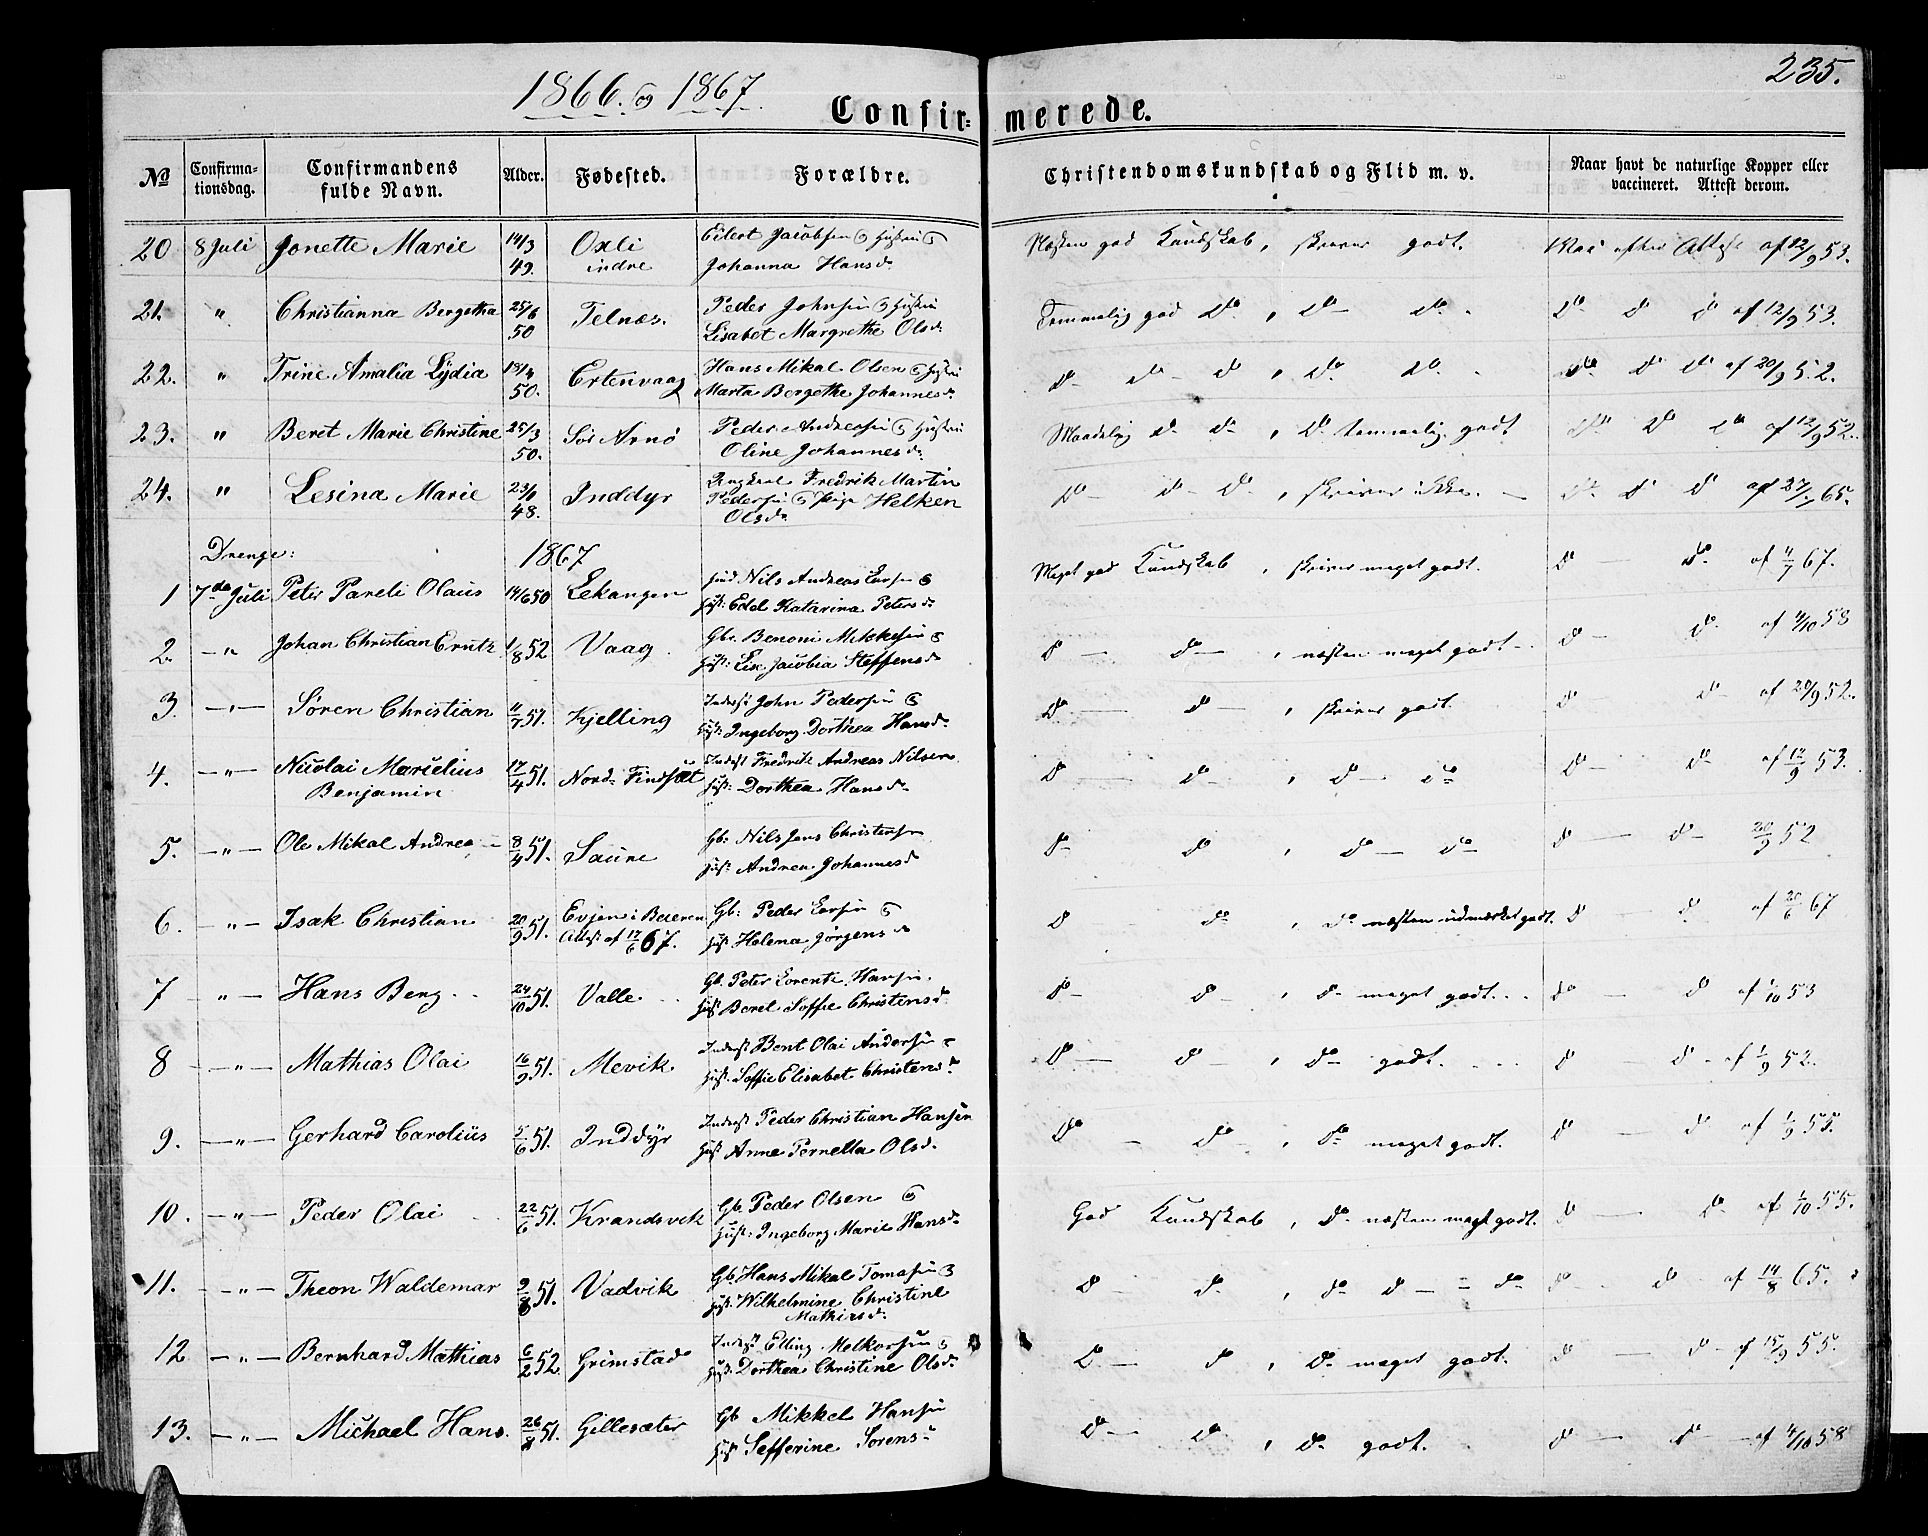 1866. og 1867. 235.
Confirmerede.
No Confirmationsdag. Confirmandens fulde Navn. Alder. Fødested. Forældre. Christendomskundskab og Flid m. v. Naar havt de naturlige Kopper eller vaccineret. Attest derom.
20 8 Juli Jonette Marie 14/3 49. Oxli indre Eilert Jacobsen og Hustru Johanna Hansd. Næsten god Kundskab, skriver godt. Vac. efter Attest af 12/9 53.
21. " Christianna Bergetha 25/6 50 Telnæs. Peder Johnsen og Hustru Lisabet Margrethe Olsd. Temmelig god Do, Do Do. Do Do Do af 12/9 53.
22. " Trine Amalia Lydia 50. Ertenvaag Hans Mikal Olsen og Hustru Marta Bergethe Johannesd. Do Do Do, Do Do. Do Do Do af 20/9 52.
23. " Beret Marie Christine 25/3 50. Sör Arnö Peder Andersen og Hustru Oline Johannesd. Maadelig Do Do, Do temmelig godt Do Do Do af 12/9 52.
24. " Lesina Marie 48. Inddyr Ungkarl Fredrik Martin Pedersen og Pige Helken Olsd. Do Do Do, skriver ikke. Do Do Do af 65.
Drenge: 1867
1 7de Juli Peter Pareli Olaus 14/6 50 Lekangen Nils Andreas Larsen og Hust: Edel Katarina Petersd. Meget god Kundskab, skriver meget godt. Do Do af 4/7 67.
2. " Johan Christian Erntz 1/8 52 Vaag Gbr. Benoni Mikkelsen og Hust: Lise Jacobia Steffensd. Do Do, næsten meget godt. Do Do af 4/10 58
3. " Søren Christian 11/7 51. Kjelling Inderst John Pedersen og Hust: Ingeborg Dorthea Hansd. Do Do, skriver godt. Do Do af 20/9 52.
4. " Nicolai Marselius Benjamin 17/4 51. Nord. Findsæt Inderst Fredrik Andreas Nilsen Hust: Dorthea Hansd. Do Do, Do Do Do Do af 12/9 53.
5. " Ole Mikal Andrea 8/4 51. Saura Gb: Nils Jens Christensen Hust: Andrea Johannesd. Do Do, Do Do Do Do 20/9 52
6. " Isak Christian 20/9 51. Evjen i Beieren Attest af 17/6 67. Gb: Peder Larsen og Hust: Helena Jörgensd. Do Do, Do næsten udmærket godt. Do Do af 20/6 67
7 " Hans Berg 24/10 51. Valle Gb. Peter Lorents Hansen. Hust Beret Soffie Christensd. Do Do, Do meget godt. Do Do af 1/10 53
8 " Mathias Olai 16/9 51. Mevik Inderst Bent Olai Andersen og Hust. Soffie Elisabet Christensd. Do Do, Do godt. Do Do af 1/9 52.
9. " Gerhard Carolius 5/6 51. Inddyr Inderst Peder Christian Hansen Hust Anne Pernella Olsd. Do Do, Do meget godt. Do Do af 1/9 55.
10. " Peder Olai 22/6 51. Krandsvik Gb. Peder Olsen og Hust: Ingeborg Marie Hansd. God Kundskab, Do næsten meget godt. Do Do af 1/10 55.
11. " Theon Waldemar 9/8 51. Vadvik Gb. Hans Mikal Tomasen og Hust: Wilhelmine Christine Mathisd. Do Do, Do Do Do Do Do af 14/8 65.
12 " Bernhard Mathias 6/2 52. Grimstad Inderst Elling Melkorsen og Hust: Dorthea Christine Olsd. Do Do, Do meget godt. Do Do af 15/9 55.
13. " Michael Hans. 26/8 51. Gillesæter Gb Mikkel Hansen Hust Sefferine Sörensd. Do Do, Do godt. Do Do af 4/10 58